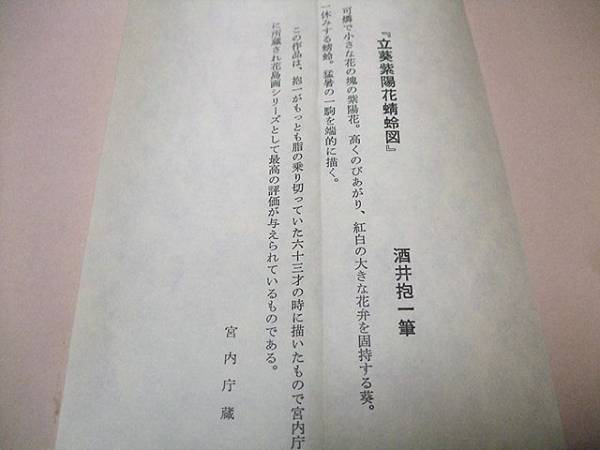 『立葵紫陽花蜻蛉図』
酒井抱一筆
可憐で小さな花の塊の紫陽花。高くのびあがり、紅白の大きな花弁を固持する葵。
一休みする蜻蛉。猛暑の一駒を端的に描く。
この作品は、抱一がもっとも脂の乗り切っていた六十三才の時に描いたもので宮内庁
に所蔵され花鳥画シリーズとして最高の評価が与えられているものである。
宮内庁蔵